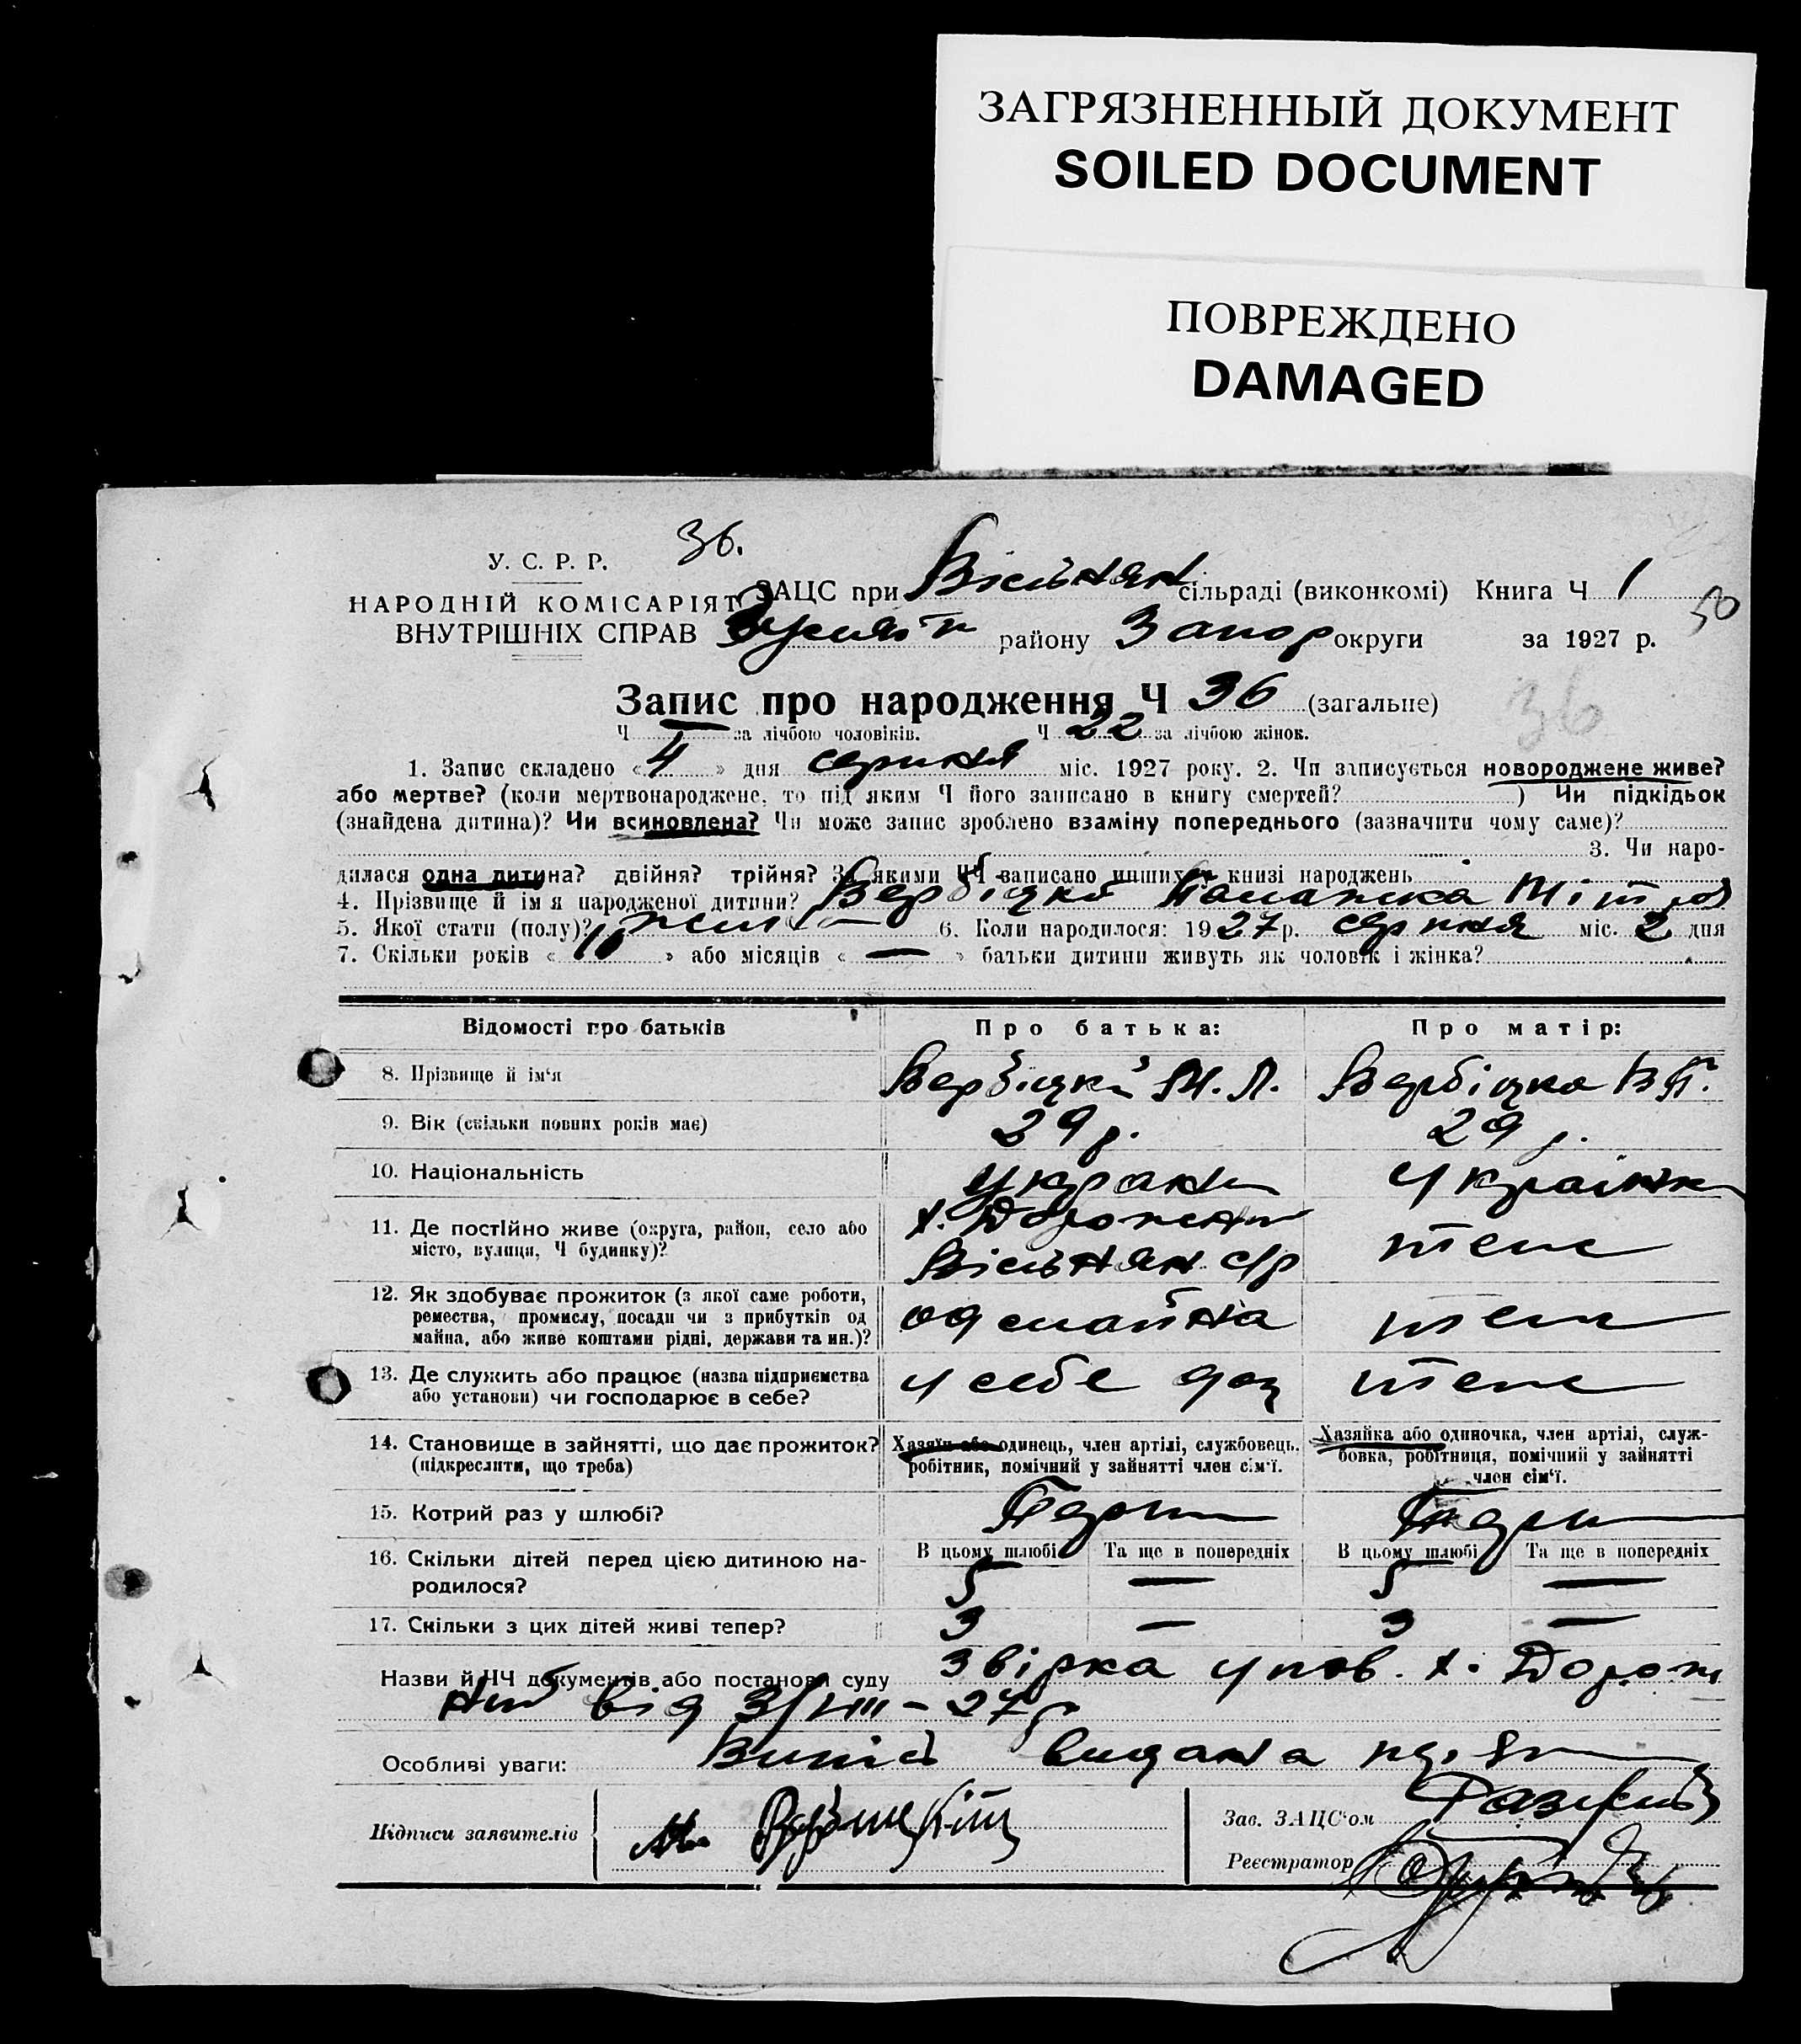 ЗАГРЯЗНЕННЫЙ ДОКУМЕНТ
SOILED DOCUMENT
ПОВРЕЖДЕНО
DAMAGED
36.
У. С. Р. Р.
НАРОДНІЙ КОМІСАРІЯТ
ВНУТРІШНІХ СПРАВ
ЗАЦС при Вільнян сільраді (виконкомі) Книга Ч 1
50
району Запор округи за 1927 р.
Запис про народження Ч 36 (загальне)
36
Ч — за лічбою чоловіків. Ч 22 за лічбою жінок.
1. Запис складено «4» дня серпня міс. 1927 року. 2. Чи записується новороджене живе?
або мертве? (коли мертвонароджене, то під яким Ч його записано в книгу смертей? ) Чи підкідьок
(знайдена дитина)? Чи всиновлена? Чи може запис зроблено взаміну попереднього (зазначити чому саме)?
3. Чи наро-
дилася одна дитина? двійня? трійня? За якими ЧЧ записано инших в книзі народжень
4. Прізвище й ім'я народженої дитини? Вербіцка
5. Якої стати (полу)? жин — 6. Коли народилося: 1927 р. серпня міс. 2 дня
7. Скільки років «10» або місяців « — » батьки дитини живуть як чоловік і жінка?
Відомості про батьків Про батька: Про матір:
8. Прізвище й ім'я Вербіцкй М. Л. Вербіцка В П.
9. Вік (скільки повних років має) 29 р. 29 р.
10. Національність украін українк
11. Де постійно живе (округа, район, село або х. Дорожн
місто, вулиця, Ч будинку)? Вільнян с/р теж
12. Як здобуває прожиток (з якої саме роботи,
ремества, промислу, посади чи з прибутків од
майна, або живе коштами рідні, держави та ин.)?
13. Де служить або працює (назва підприємства у себе теж
або установи) чи господарює в себе?
14. Становище в зайнятті, що дає прожиток? Хазяїн або одинець, член артілі, службовець, Хазяйка або одиночка, член артілі, служ-
(підкреслити, що треба) робітник, помічний у зайнятті член сім'ї. бовка, робітниця, помічний у зайнятті
член сім'ї.
15. Котрий раз у шлюбі? Перш Перш
16. Скільки дітей перед цією дитиною на- В цьому шлюбі Та ще в попередніх В цьому шлюбі Та ще в попередніх
родилося? 5 — 5 —
17. Скільки з цих дітей живі тепер? 3 — 3 —
Назви й ЧЧ документів або постанови суду звірка упов. х. Дорож
від 3/VIII – 27 р
Особливі уваги: видана
Підписи заявителів
Зав. ЗАЦС'ом
Реєстратор